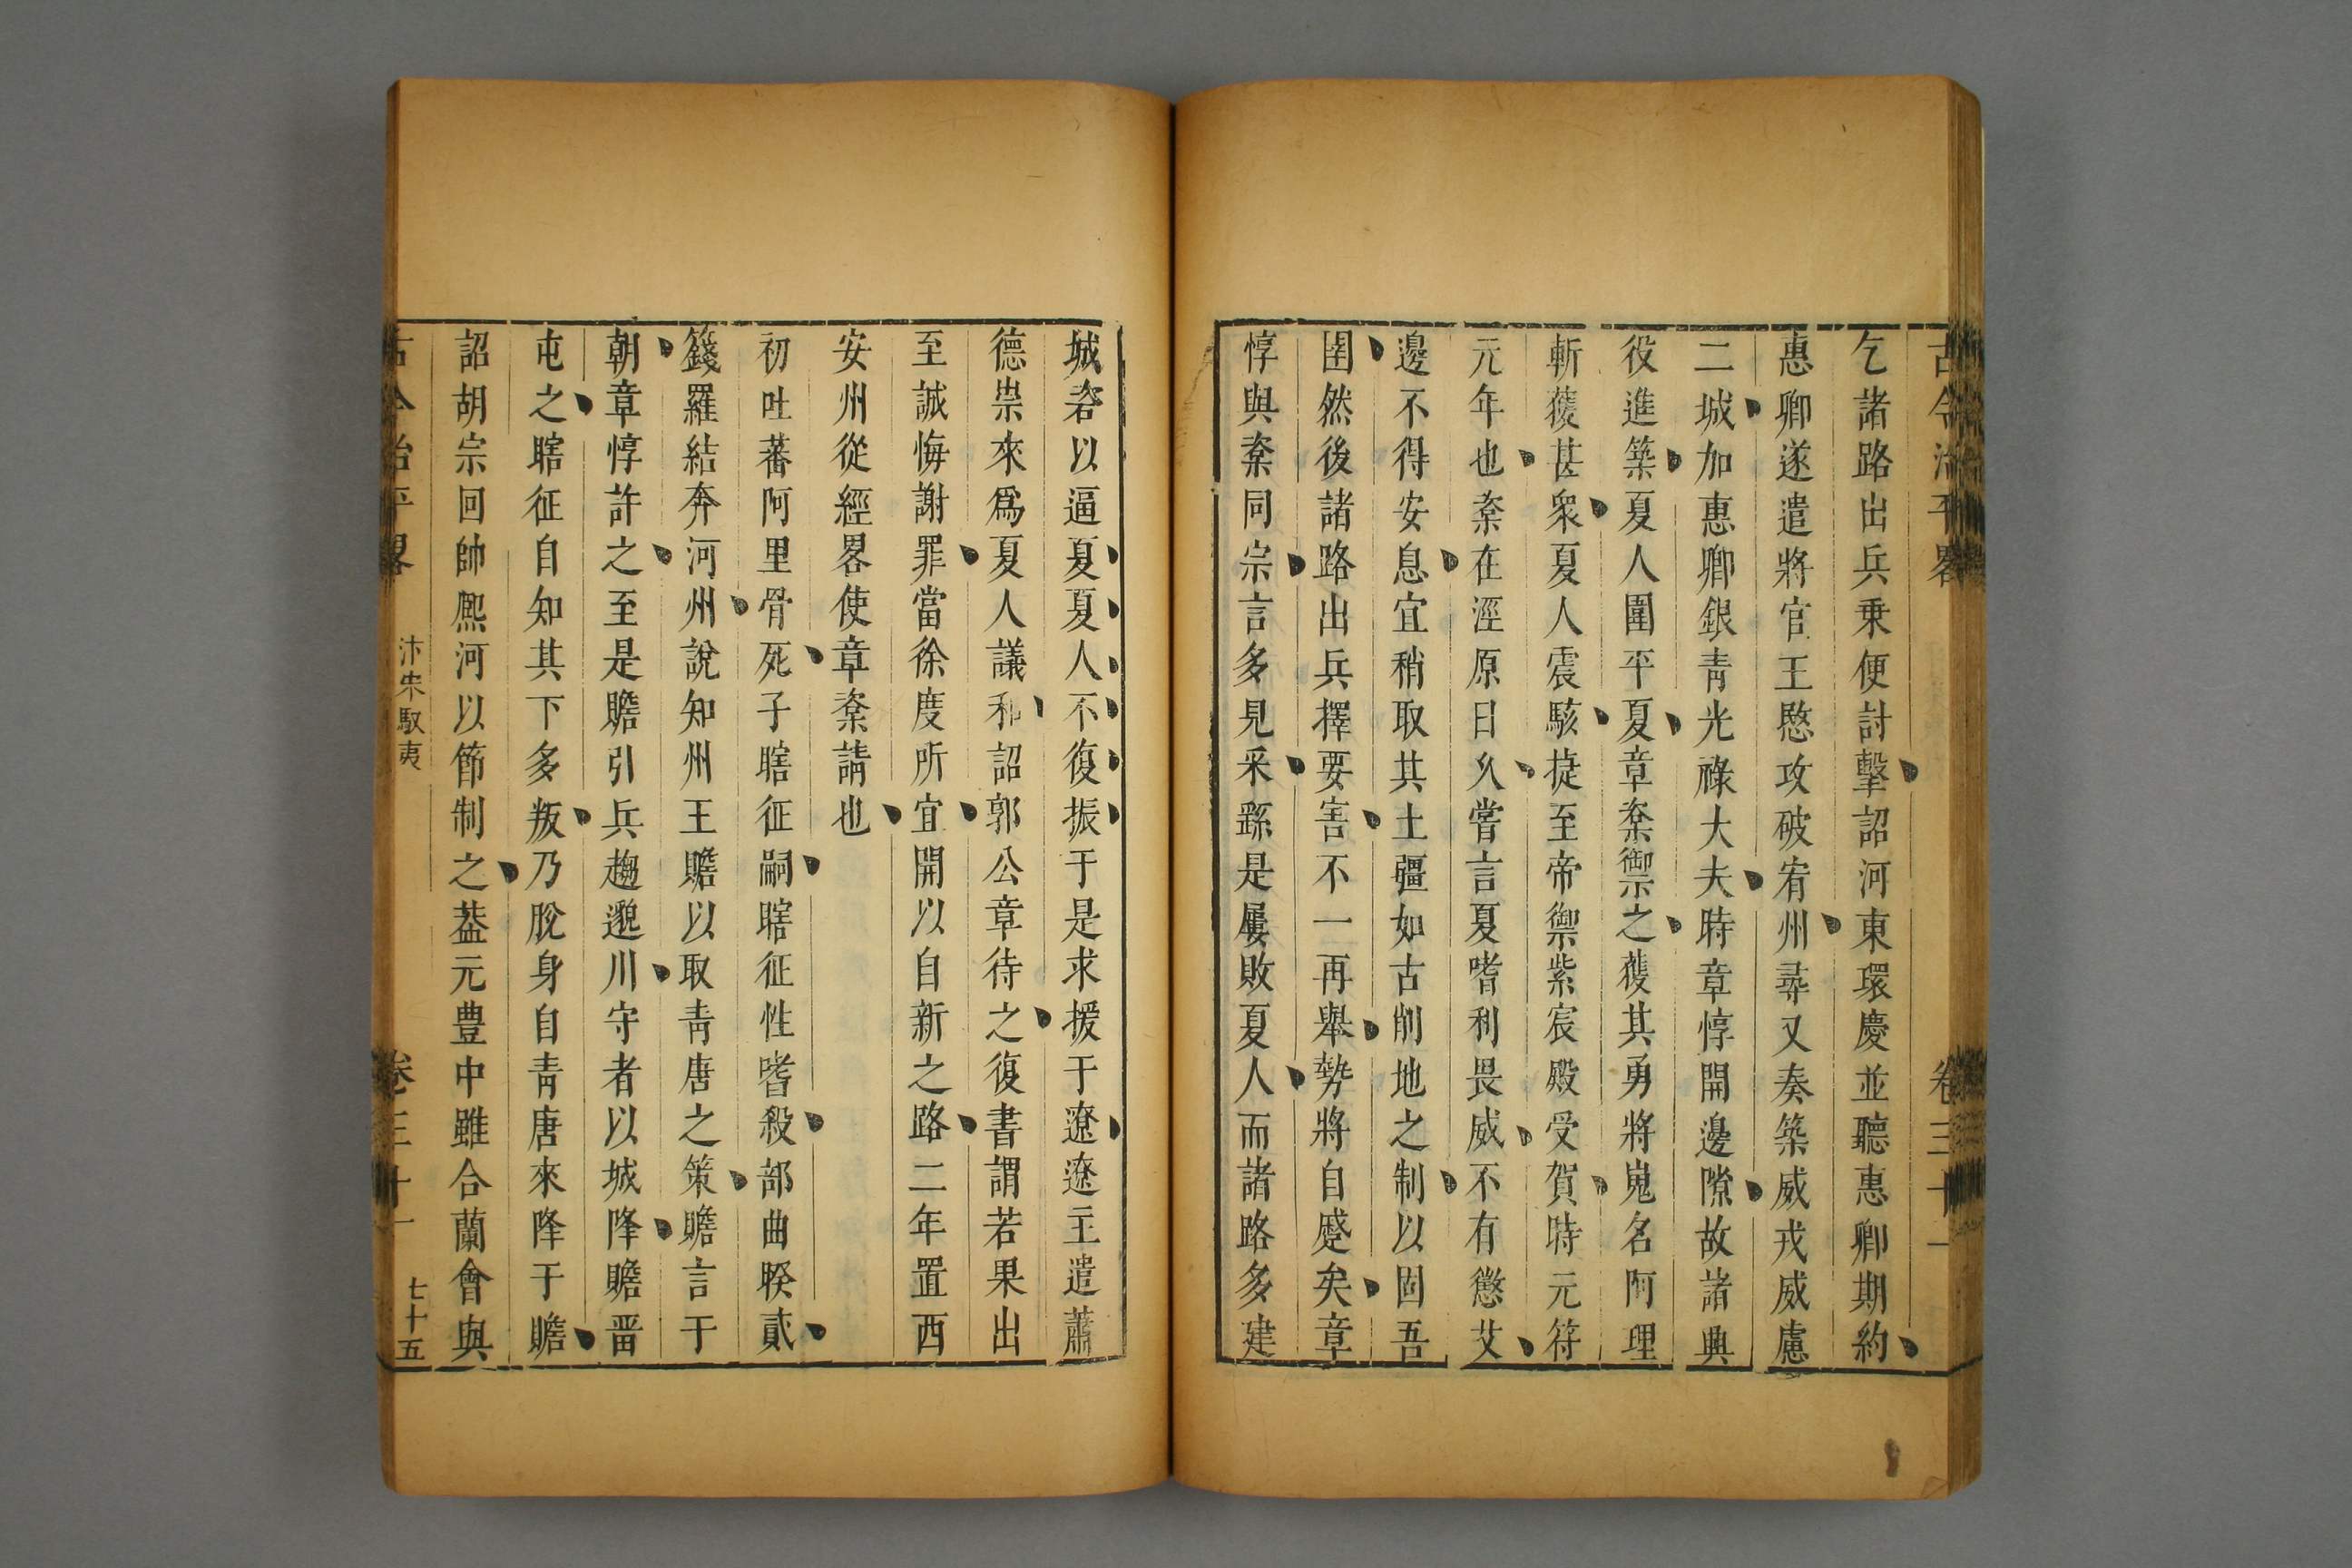 古今治平畧 卷三十一
乞諸路出兵乗便討擊詔河東環慶並聽惠卿期約
惠卿遂遣將官王愍攻破宥州尋又奏築威戎威慮
二城加惠卿銀靑光祿大夫時章惇開邊隙故諸興
役進築夏人圍平夏章楶禦之獲其勇將嵬名阿理
斬獲甚衆夏人震駭捷至帝御紫宸殿受賀時元符
元年也楶在涇原日久嘗言夏嗜利畏威不有懲艾
邊不得安息宜稍取其土疆如古削地之制以固吾
圉然後諸路出兵擇要害不一再舉勢將自蹙矣章
惇與楶同宗言多見采繇是屢敗夏人而諸路多建
城砦以逼夏夏人不復振于是求援于遼遼主遣蕭
德崇來爲夏人議和詔郭公章待之復書謂若果出
至誠悔謝罪當徐度所宜開以自新之路二年置西
安州從經畧使章楶請也
初吐蕃阿里骨死子瞎征嗣瞎征性嗜殺部曲睽貳
籛羅結奔河州說知州王贍以取靑唐之策贍言于
朝章惇許之至是贍引兵趨邈川守者以城降贍畱
屯之瞎征自知其下多叛乃脫身自靑唐來降于贍
詔胡宗回帥熙河以節制之葢元豊中雖合蘭會與
古今治平畧 汴宋馭夷 卷三十一 七十五